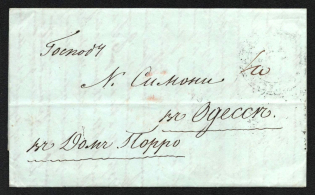 Господ
Н. Симони
въ Одессѣ.
въ Домъ Порро